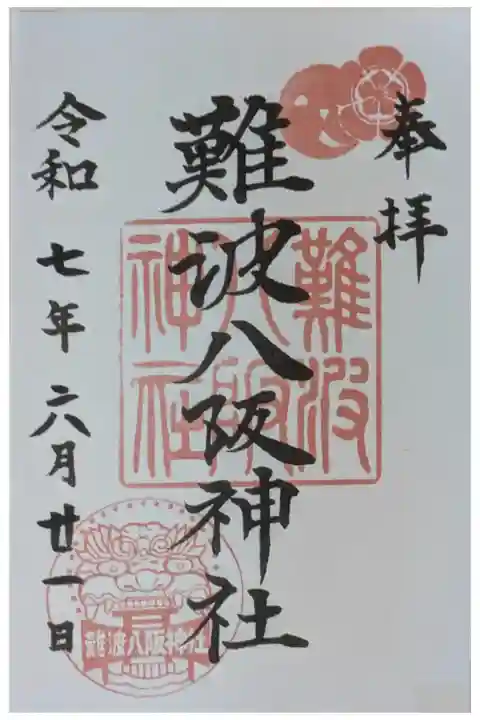 奉拝
難波八阪神社
令和七年六月廿一日
難波
八阪
神社
難波八阪神社